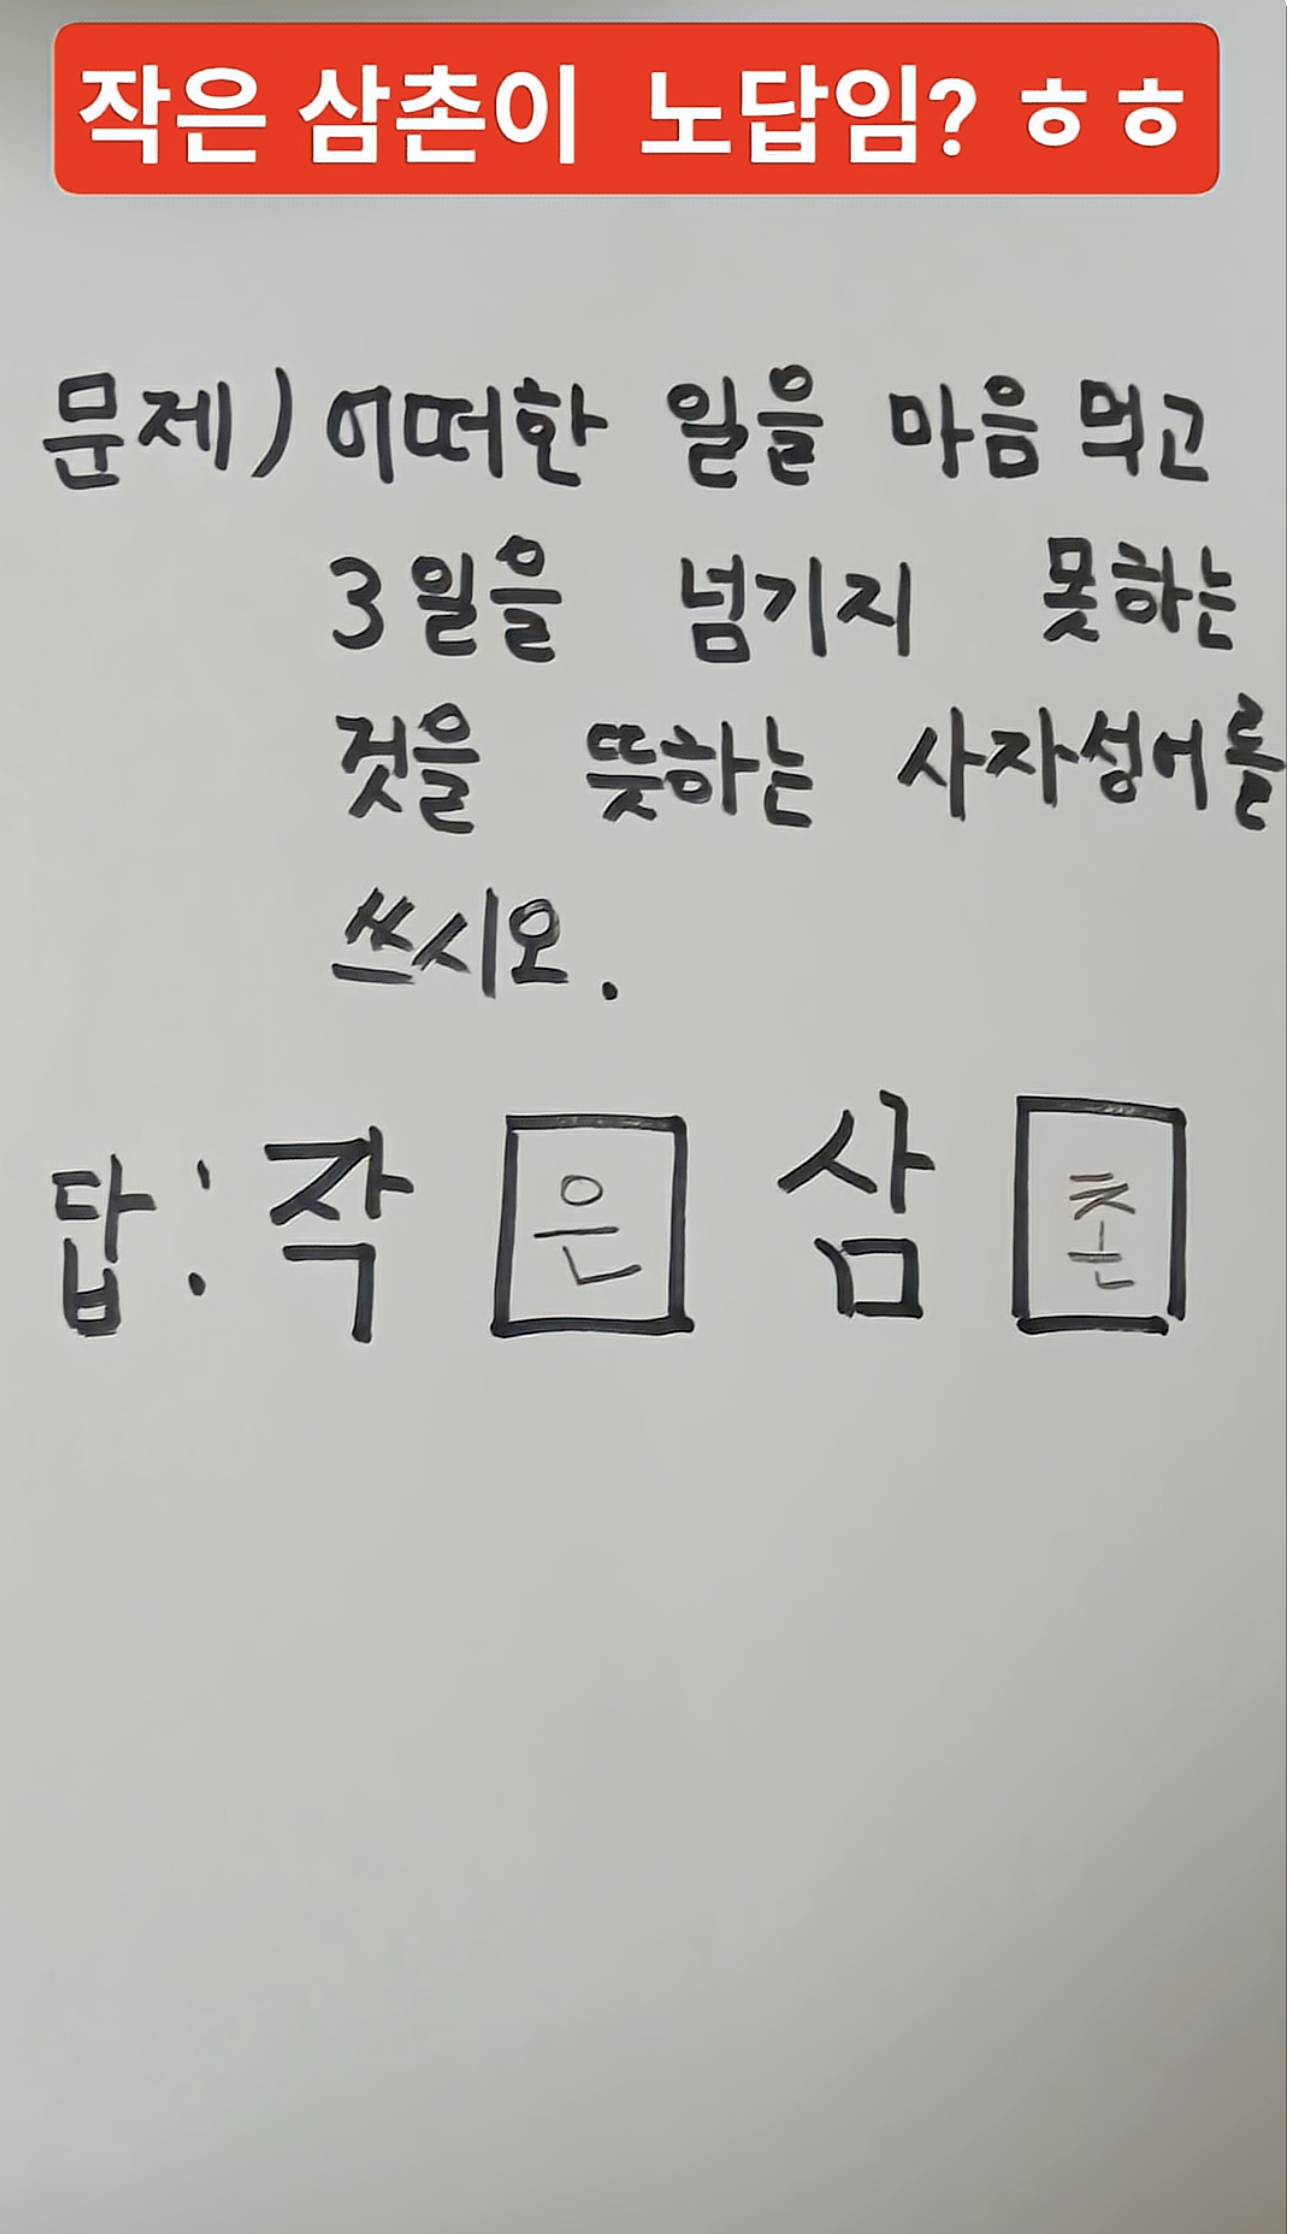 작은 삼촌이 노답임? ㅎㅎ
문제) 어떠한 일을 마음 먹고
3일을 넘기지 못하는
것을 뜻하는 사자성어를
쓰시오.
답: 작 은 삼 촌